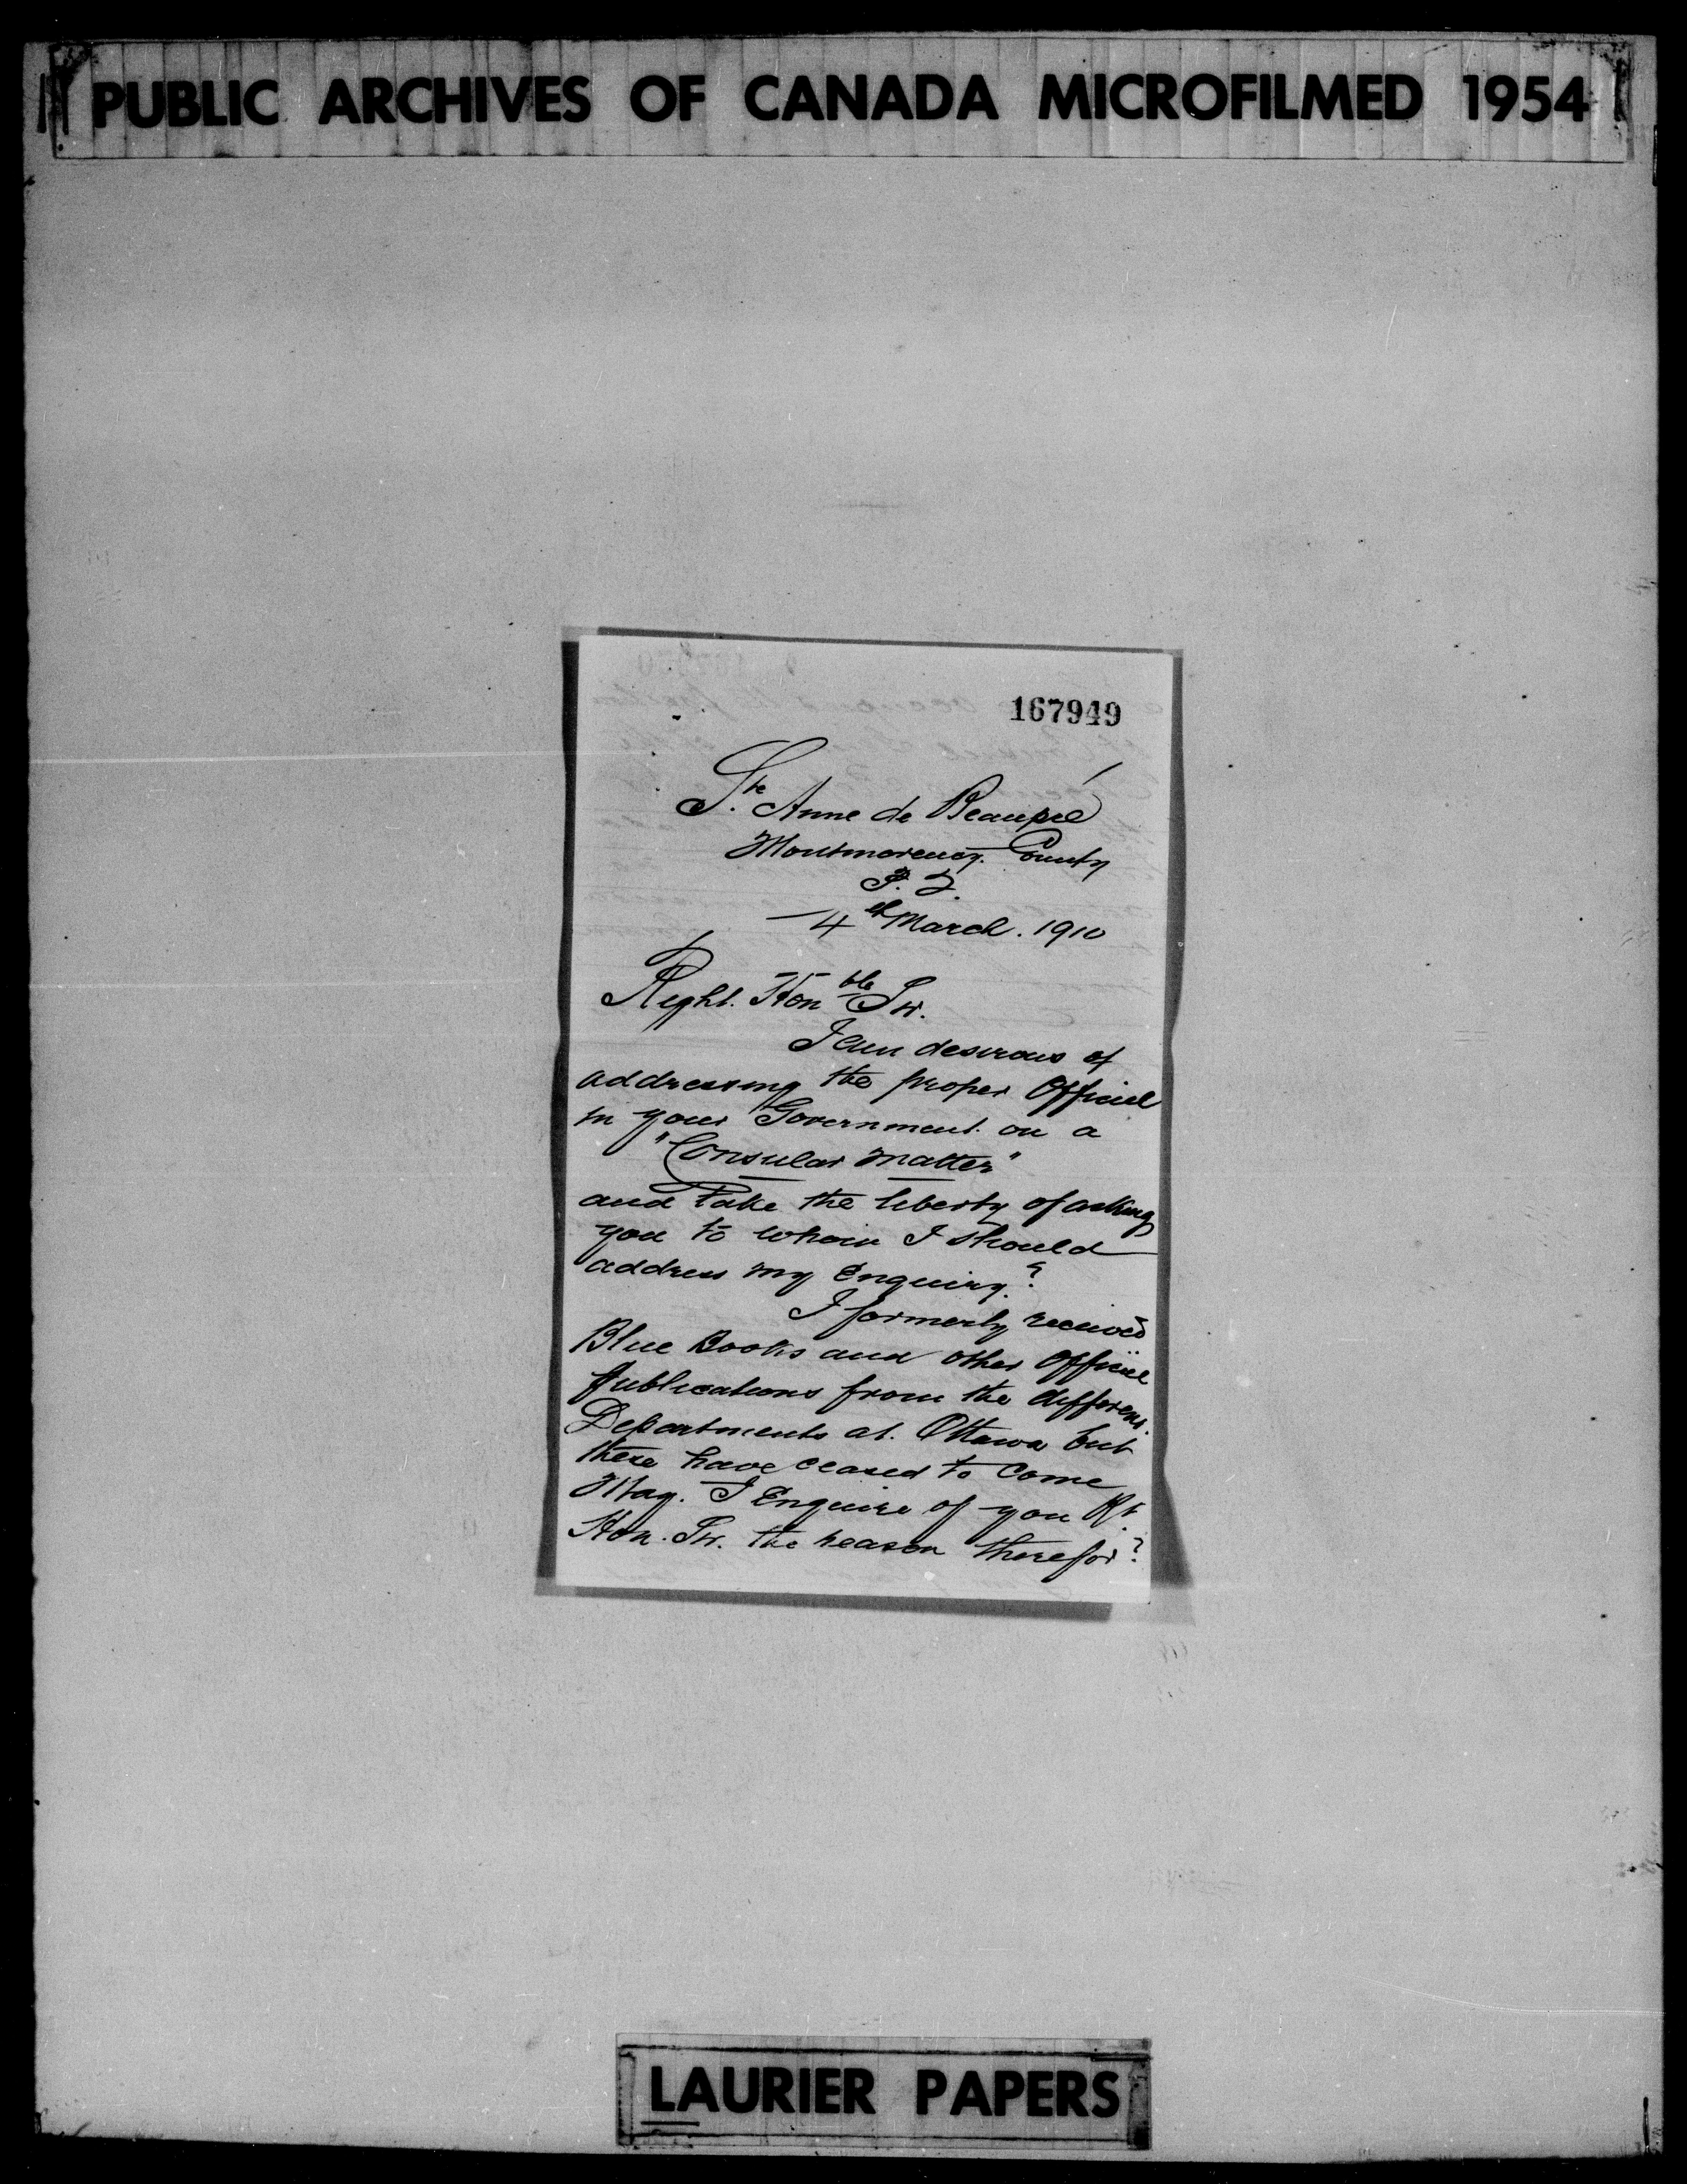 PUBLIC ARCHIVES OF CANADA MICROFILMED 1954
167949
Ste. Anne de Beaupré
Montmorency. County
P. Q.
4th March. 1910
Right. Honble Sir.
I am desirous of
addressing the proper Official
in your Government on a
"Consular Matter"
and take the liberty of asking
you to whom I should
address my Enquiry?
I formerly received
Blue Books and other Official
publications from the different
Departments at. Ottawa but
these have ceased to come
May. I Enquire of you Rt.
Hon. Sir. the reason therefor?
LAURIER PAPERS